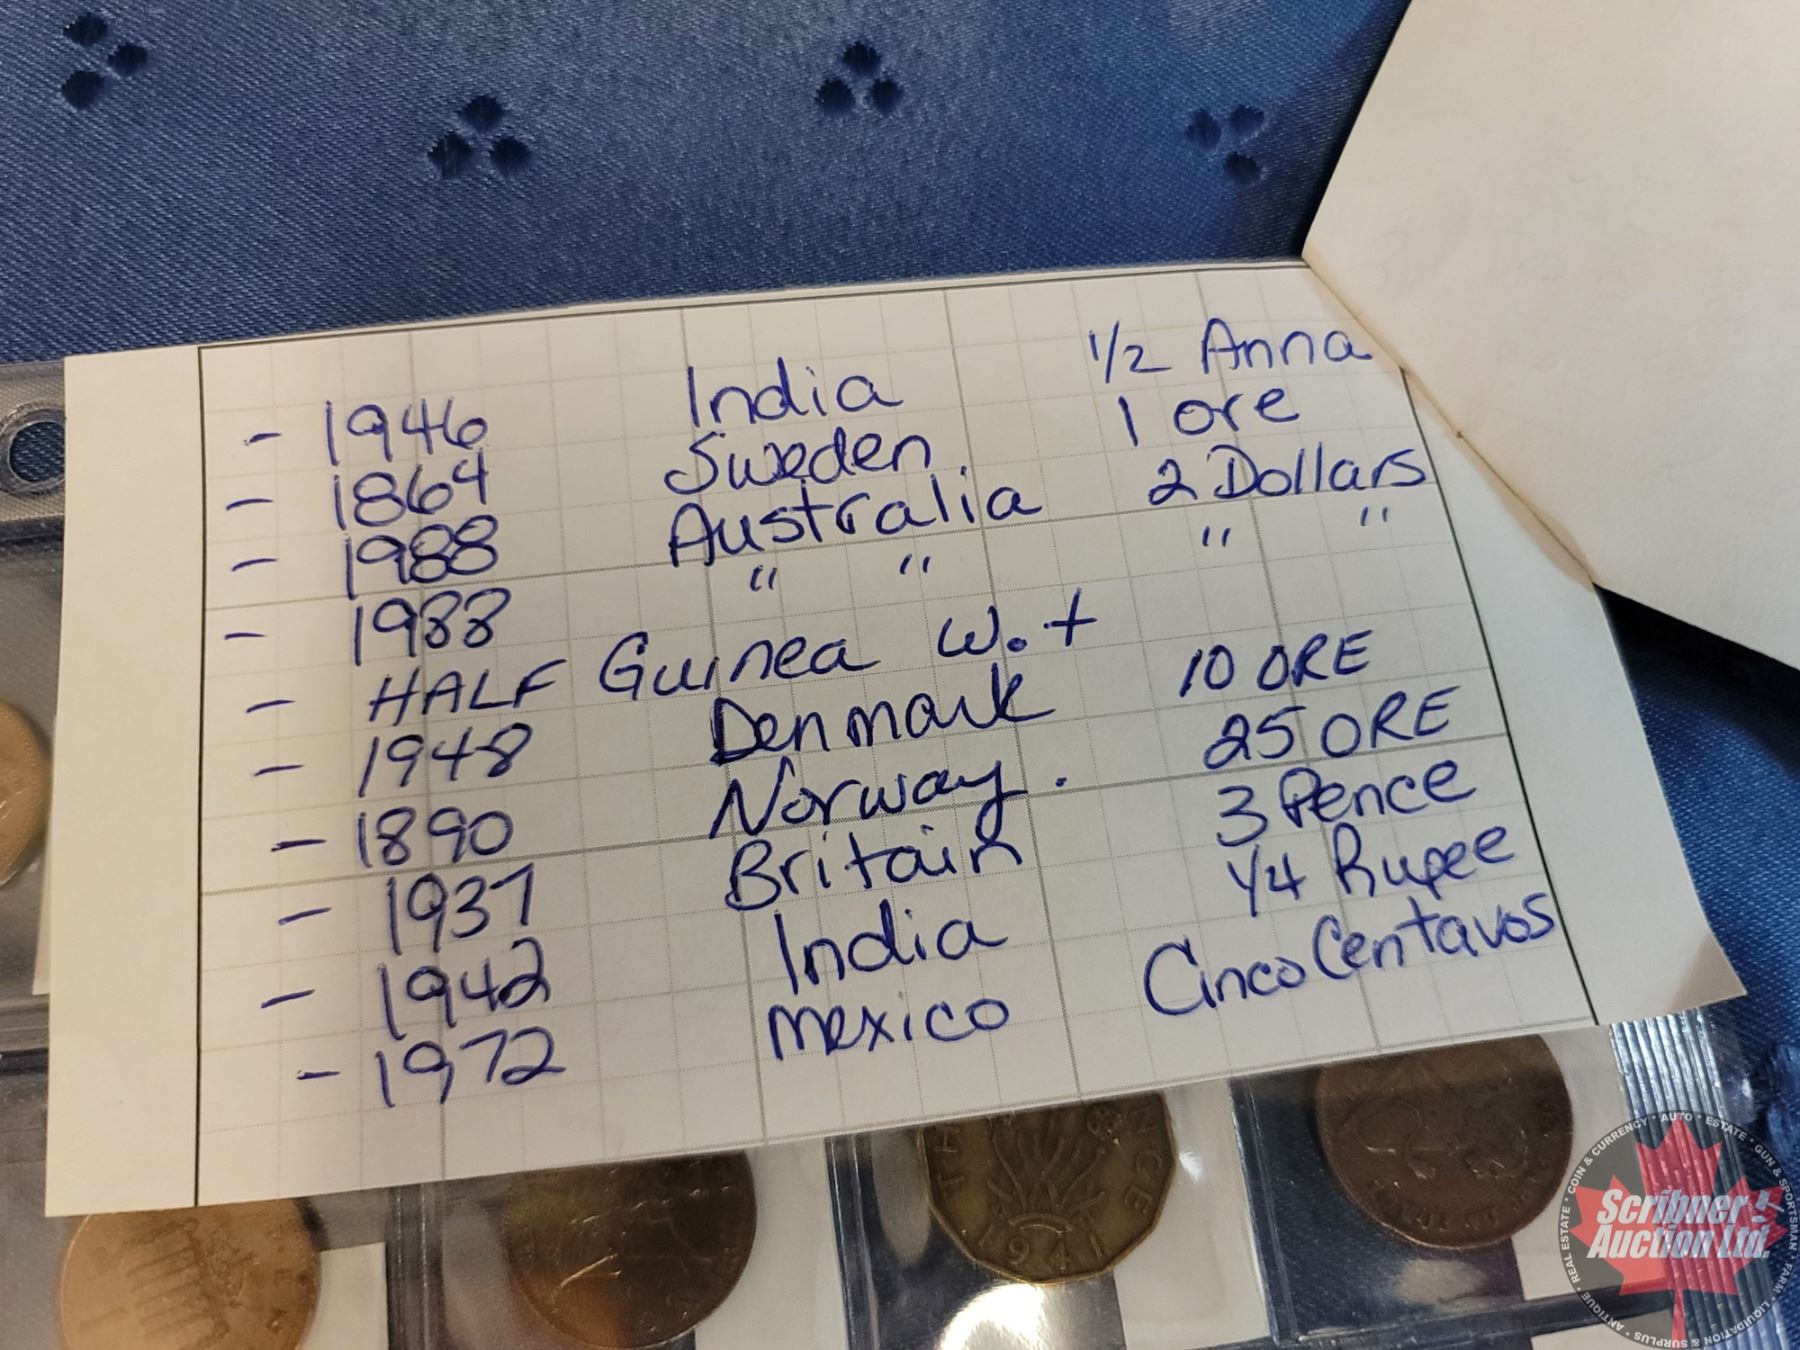 - 1946 India 1/2 Anna
- 1864 Sweden. 1 ore
- 1988 Australia 2 Dollars
- 1988 " " " "
- HALF Guinea W.t
- 1948 Denmark 10 ORE
- 1890 Norway. 25 ORE
- 1937 Britain 3 Pence
- 1942 India 1/4 Rupee
- 1972 mexico Cinco Centavos
1941
REAL ESTATE • COIN & CURRENCY • AUTO • ESTATE • GUN & SPORTSMAN
FARM • LIQUIDATION & SURPLUS • ANTIQUE
Scribner!
Auction Ltd.